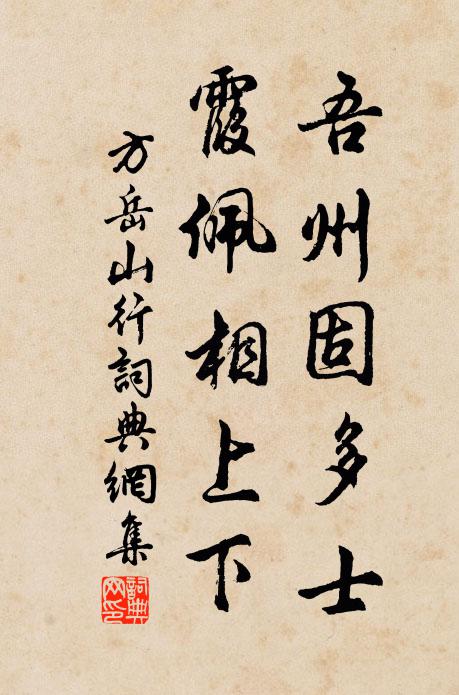 吾州固多士
霞佩相上下
方岳山行詞典網集
詞典
网印